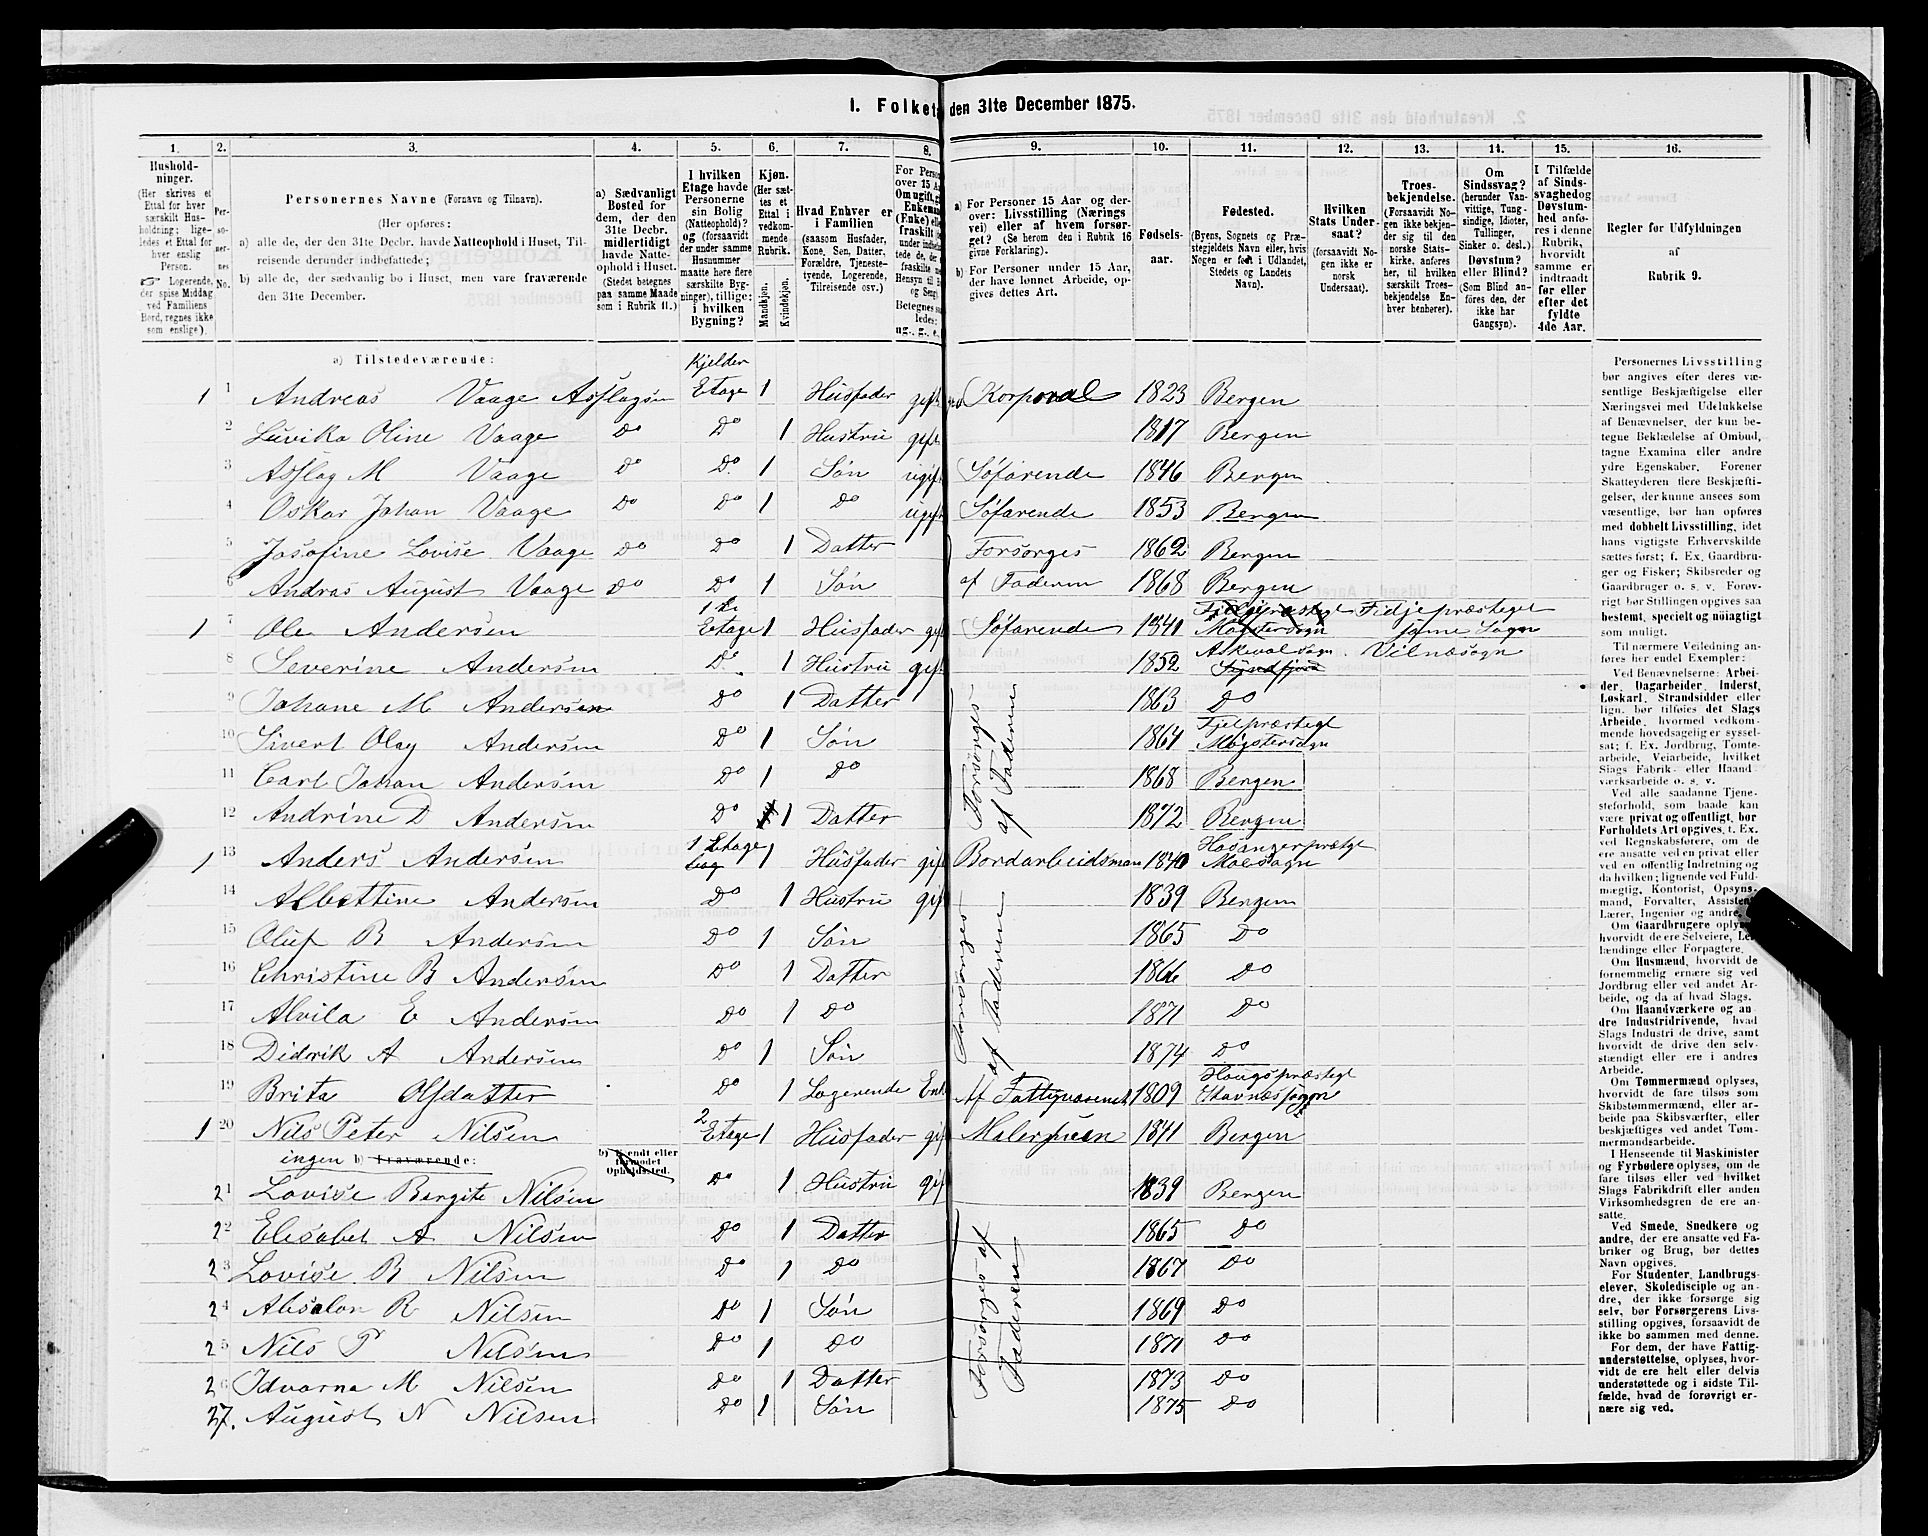 1. Folket den 31te December 1875.
1. 2. 3. 4. 5. 6. 7. 8. 9. 10. 11. 12. 13. 14. 15. 16.
Hushold-
ninger.
(Her skrives et
Ettal for hver
særskilt Hus-
holdning; lige-
ledes et Ettal for
hver enslig
Person.
☞ Logerende,
der spise Middag
ved Familiens
Bord, regnes ikke
som enslige).
Per-
so-
ner-
nes
No.
Personernes Navne (Fornavn og Tilnavn).
(Her opføres:
a) alle de, der den 31te Decbr. havde Natteophold i Huset, Til-
reisende derunder indbefattede;
b) alle de, der sædvanlig bo i Huset, men vare fraværende
den 31te December.
a) Sædvanligt
Bosted for
dem, der den
31te Decbr.
midlertidigt
havde Natte-
ophold i Huset.
(Stedet betegnes
paa samme Maade
som i Rubrik 11.)
I hvilken
Etage havde
Personerne
sin Bolig
(Natteophold)?
og (forsaavidt
der under samme
Husnummer
maatte høre flere
særskilte Byg-
ninger), tillige:
i hvilken
Bygning?
Kjøn.
(Her sæt-
tes et
Ettal i
vedkom-
mende
Rubrik.
Mandkjøn.
Kvindekjøn.
Hvad Enhver er
i Familien
(saasom Husfader,
Kone, Søn, Datter,
Forældre, Tjeneste-
tyende, Logerende,
Tilreisende osv.)
For Perso
over 15 A
Om ugift, g
Enkema
(Enke) el
fraskilt
under indbe
tede de,
fraskilte
Hensyn til B
og Seng
Betegnes s
ledes:
ug., g., e.
a) For Personer 15 Aar og der-
over: Livsstilling (Nærings
vei) eller af hvem forsør-
get? (Se herom den i Rubrik 16
givne Forklaring).
b) For Personer under 15 Aar,
der have lønnet Arbeide, op-
gives dettes Art.
Fødsels-
aar.
Fødested.
(Byens, Sognets og Præ-
stegjeldets Navn eller, hvis
Nogen er født i Udlandet,
Stedets og Landets
Navn).
Hvilken
Stats Under-
saat?
(forsaavidt No-
gen ikke er
norsk
Undersaat).
Troes-
bekjendelse.
(Forsaavidt No-
gen ikke bekjen-
der sig til den
norske Stats-
kirke, anføres
her, til hvilken
særskilt Troes-
bekjendelse En-
hver henhører).
Om
Sindssvag?
(herunder Van-
vittige, Tung-
sindige, Idioter,
Tullinger,
Sinker o. desl.)
Døvstum?
eller Blind?
(Som Blind an-
føres den, der
ikke har
Gangsyn).
I Tilfælde
af Sinds-
svaghed og
Døvstum-
hed anfø-
res i denne
Rubrik,
hvorvidt
samme er
indtraadt
før eller
efter det
fyldte
4de Aar.
Regler for Udfyldningen
af
Rubrik 9.
a) Tilstedeværende:
Kjelder
1 1 Andreas Vaage Asflagsen Etage 1 Husfader gift Korporal 1823 Bergen
2 Luvika Oline Vaage Do Do 1 Hustru gift 1817 Bergen
3 Asflag M Vaage Do Do 1 Søn ugift Søfarende 1846 Bergen
4 Oskar Johan Vaage Do Do 1 Do ugift Søfarende 1853 Bergen
5 Josofine Lovise Vaage Do Do 1 Datter Forsørges 1862 Bergen
6 Andras August Vaage Do Do 1 Søn af Faderen 1868 Bergen
1 7 Ole Andersen 1ste Etage 1 Husfader gift Søfarende 1841 Møgstersogn Fidje præsteget samme Sogn
8 Severine Andersen Do 1 Hustru gift 1852 Askevol sogn Vilnæsogn Søndfjord
9 Johane M Andersen Do 1 Datter 1863 Do
10 Sivert Olay Andersen Do 1 Søn 1864 Fjelpræstegt Møgstersogn
11 Carl Johan Andersen Do 1 Do 1868 Bergen
12 Andrine D Andersen Do 1 Datter 1872 Bergen
Forsørges
af Faderen
1 13 Anders Andersen 1 Etage 1 Husfader gift Bordarbeidsman 1840 Hosangerpræstgt Moesogn
14 Albettine Andersen Do 1 Hustru gift 1839 Bergen
15 Oluf B Andersen Do 1 Søn 1865 Do
16 Christine B Andersen Do 1 Datter 1866 Do
17 Alvila E Andersen Do 1 Do 1871 Do
18 Didrik A Andersen Do 1 Søn 1874 Do
Forsørges
af Faderen
19 Brita Olsdatter Do 1 Logerende Enk Af Fattigvæsenet 1809 Hougspræstegt Stavnæssogn
1 20 Nils Peter Nilsen 2 Etage 1 Husfader gift Malersven 1841 Bergen
ingen b) Fraværende:
b) Kjendt eller
formodet
Opholdssted.
21 Lovise Bergite Nilsen Do 1 Hustru gift 1839 Bergen
22 Elesabet A Nilsen Do 1 Datter 1865 Do
23 Lovise B Nilsen Do 1 Do 1867 Do
24 Absalon R Nilsen Do 1 Søn 1869 Do
25 Nils P Nilsen Do 1 Do 1871 Do
26 Idvarna M Nilsen Do 1 Datter 1873 Do
27. August N Nilsen Do 1 Søn 1875 Do
Forsørges af
Faderen
Personernes Livsstilling
bør angives efter deres væ-
sentlige Beskjæftigelse eller
Næringsvei med Udelukkelse
af Benævnelser, der kun be-
tegne Beklædelse af Ombud,
tagne Examina eller andre
ydre Egenskaber. Forener
Skatteyderen flere Beskjæfti-
gelser, der kunne ansees som
væsentlige, bør han opføres
med dobbelt Livsstilling, idet
hans vigtigste Erhvervskilde
sættes først; f. Ex. Gaardbru-
ger og Fisker; Skibsreder og
Gaardbruger o. s. v. Forøv-
rigt bør Stillingen opgives saa
bestemt, specielt og nøiagtigt
som muligt.
Til nærmere Veiledning an-
føres her endel Exempler:
Ved Benævnelserne: Arbei-
der, Dagarbeider, Inderst,
Løskarl, Strandsidder eller
lign. bør tilføies det Slags
Arbeide, hvormed vedkom-
mende hovedsagelig er syssel-
sat; f. Ex. Jordbrug, Tomte-
arbeide, Veiarbeide, hvilket
Slags Fabrik- eller Haand-
værksarbeide o. s. v.
Ved alle saadanne Tjene-
steforhold, som baade kan
være privat og offentligt, bør
Forholdets Art opgives, t. Ex.
ved Regnskabsførere, om de
ere ansatte ved en privat eller
ved en offentlig Indretning og
da hvilken; lignende ved Fuld-
mægtig, Kontorist, Opsyns-
mand, Forvalter, Assistent,
Lærer, Ingeniør og andre.
Om Gaardbrugere oplyses,
hvorvidt de ere Selveiere, Lei-
lændinge eller Forpagtere.
Om Husmænd, hvorvidt de
fornemmelig ernære sig ved
Jordbrug eller ved andet Ar-
beide, og da af hvad Slags.
Om Haandværkere og an-
dre Industridrivende, hvad
Slags Industri de drive, samt
hvorvidt de drive den selv-
stændigt eller ere i andres
Arbeide.
Om Tømmermænd oplyses,
hvorvidt de fare tilsøs som
Skibstømmermænd, eller ar-
beide paa Skibsværfter, eller
beskjæftiges ved andet Tøm-
mermandsarbeide.
I Henseende til Maskinister
og Fyrbødere oplyses, om de
fare tilsøs eller ved hvilket
Slags Fabrikdrift eller anden
Virksomhedsgren de ere an-
satte.
Ved Smede, Snedkere og
andre, der ere ansatte ved Fa-
briker og Brug, bør dettes
Navn opgives.
For Studenter, Landbrugs-
elever, Skoledisciple og an-
dre, der ikke forsørge sig
selv, bør Forsørgerens Livs-
stilling opgives, forsaavidt de
ikke bo sammen med denne.
For dem, der have Fattig-
understøttelse, oplyses, hvor-
vidt de ere helt eller delvis
understøttede og i sidste Til-
fælde, hvad de forøvrigt er-
nære sig ved.